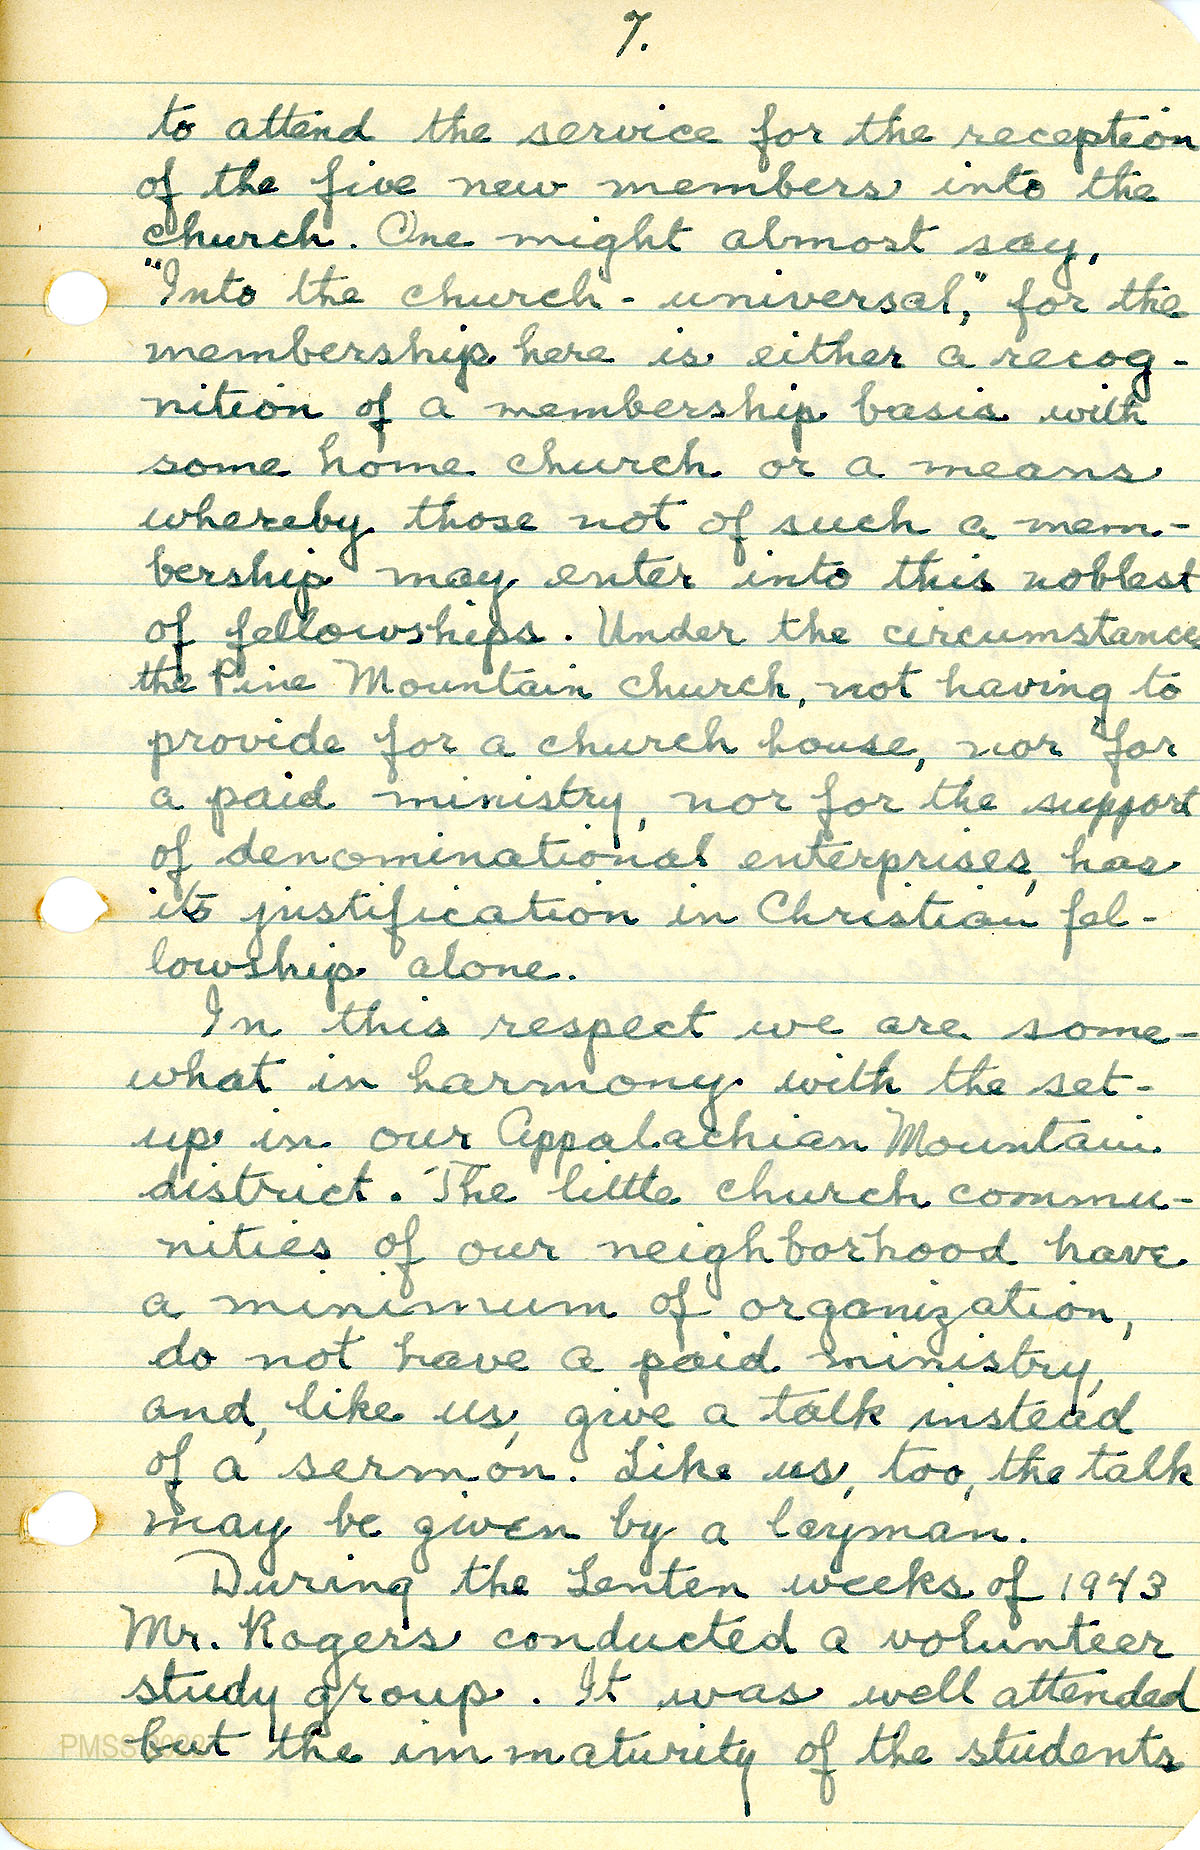 7.
to attend the service for the reception
of the five new members into the
church. One might almost say,
"Into the church - universal," for the
membership here is either a recog-
nition of a membership basis with
some home church or a means
whereby those not of such a mem-
bership may enter into this noblest
of fellowships. Under the circumstance
the Pine Mountain church, not having to
provide for a church house, nor for
a paid ministry, nor for the support
of denominational enterprises, has
its justification in Christian fel-
lowship alone.
In this respect we are some-
what in harmony with the set-
up in our Appalachian Mountain
district. The little church commu-
nities of our neighborhood have
a minimum of organization,
do not have a paid ministry,
and, like us, give a talk instead
of a sermon. Like us, too, the talk
may be given by a layman.
During the Lenten weeks of 1943
Mr. Rogers conducted a volunteer
study group. It was well attended
but the immaturity of the students